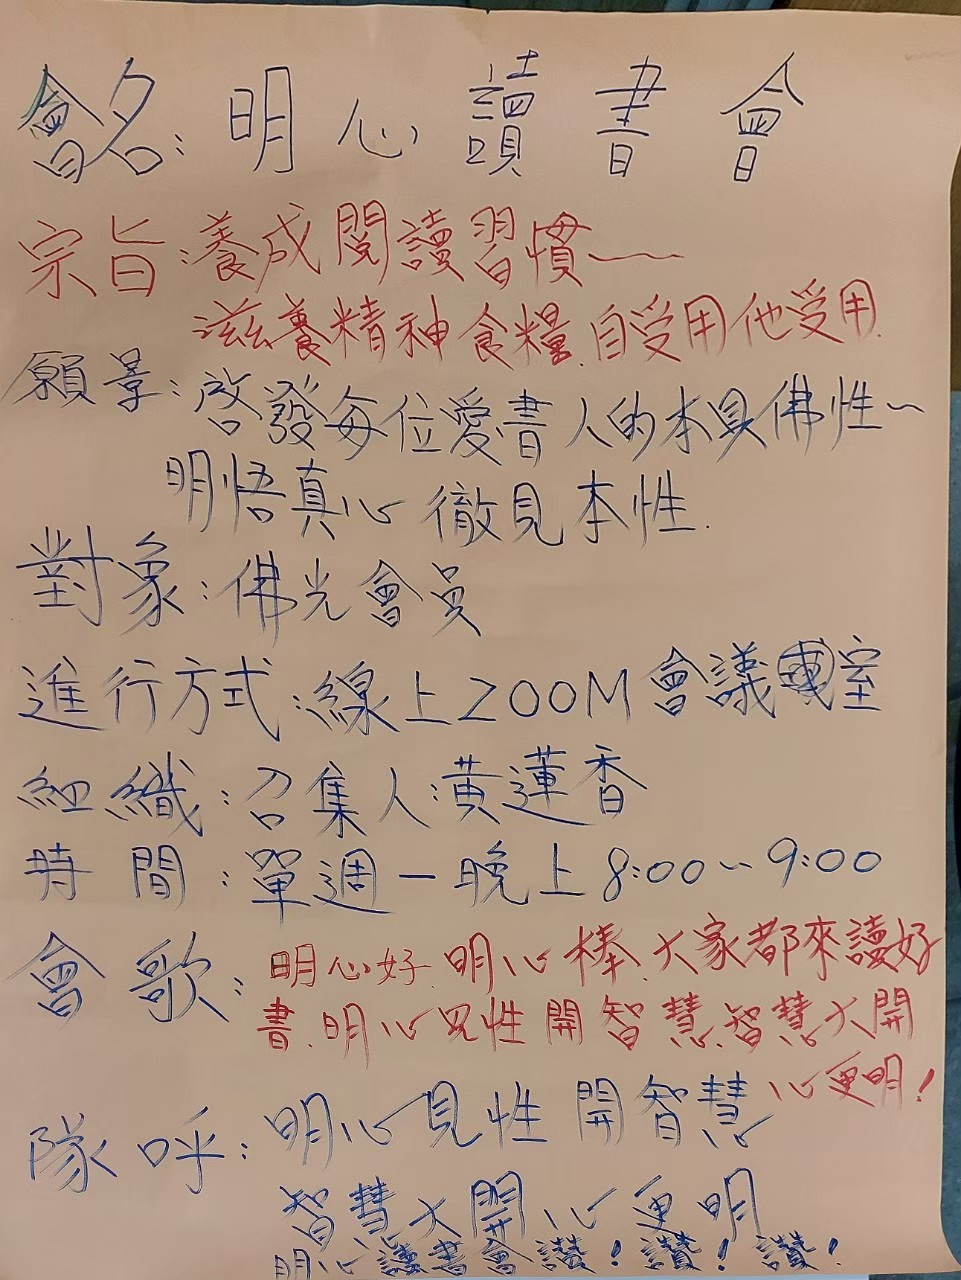 會名:明心讀書會
宗旨:養成閱讀習慣~
滋養精神食糧.自受用他受用.
願景:啓發每位愛書人的本具佛性~
明悟真心徹見本性.
對象:佛光會員
進行方式:線上ZOOM會議室
組織:召集人:黃蓮香
時間:單週一晚上8:00~9:00
會歌:明心好.明心棒.大家都來讀好
書.明心見性開智慧.智慧大開
心更明!
隊呼:明心見性開智慧
智慧大開心更明
明心讀書會讚!讚!讚!